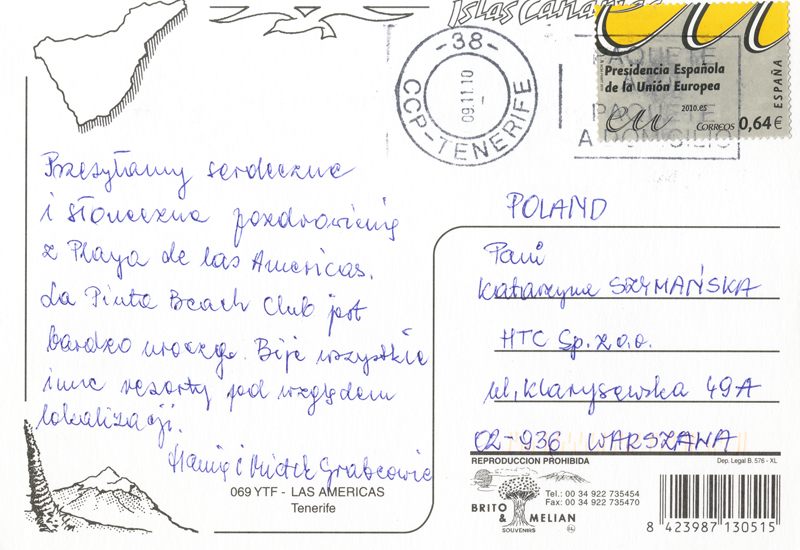 Islas Canarias
-38-
CCP-TENERIFE
09.11.10
PAQUETE
A
PAQUETE
A DOMICILIO
Presidencia Española
de la Unión Europea
2010.es
eu
CORREOS 0,64€
ESPAÑA
Przesyłamy serdeczne
i słoneczne pozdrowienia
z Playa de las Americas.
La Pinta Beach Club jest
bardzo urocze. Bije wszystkie
inne resorty pod względem
lokalizacji.
Grabcowie
POLAND
Pani
Katarzyna SZYMAŃSKA
HTC Sp. z o.o.
ul. Kłarysewska 49A
02-936 WARSZAWA
069 YTF - LAS AMERICAS
Tenerife
REPRODUCCION PROHIBIDA
Dep. Legal B. 578 - XL
BRITO & MELIAN
SOUVENIRS
Tel.: 00 34 922 735454
Fax: 00 34 922 735470
8 423987 130515